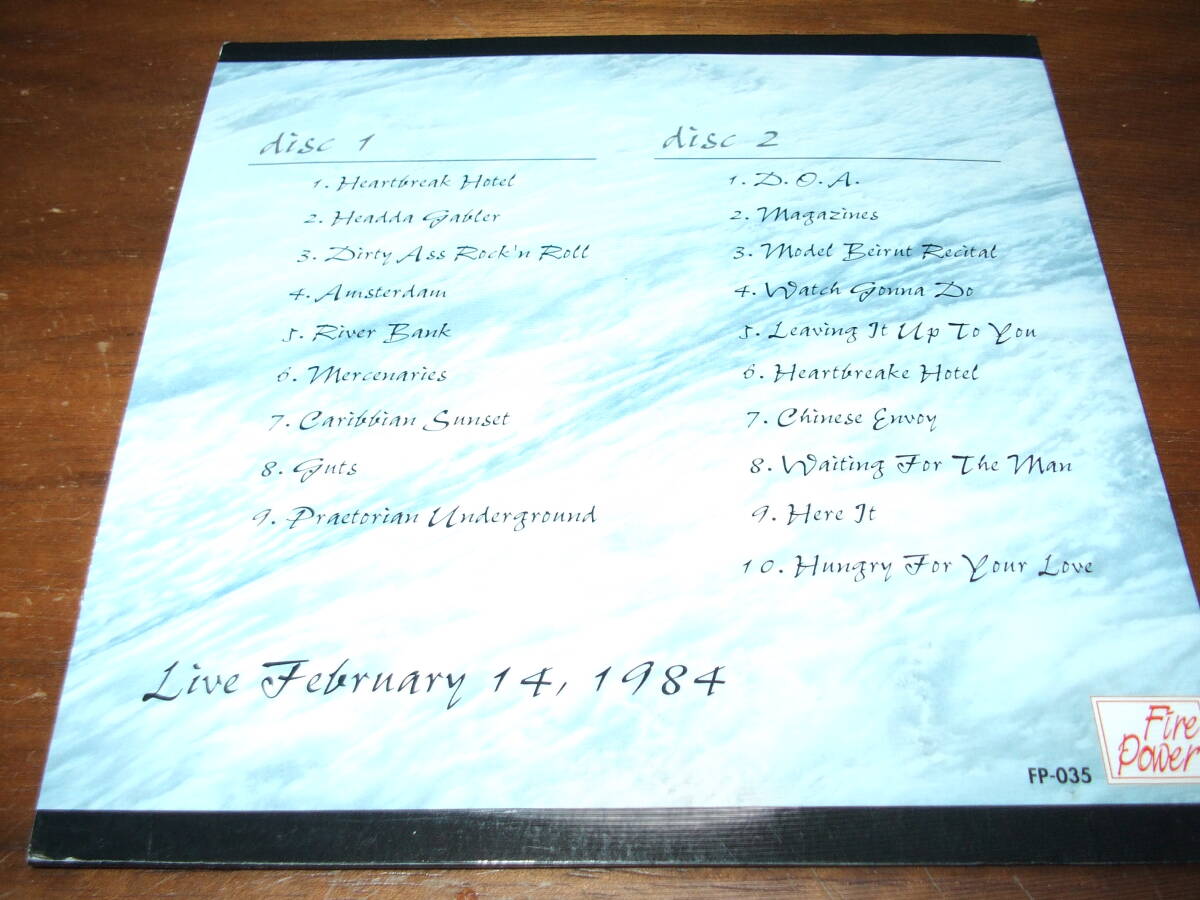 disc 1
1. Heartbreak Hotel
2. Headda Gabler
3. Dirty Ass Rock'n Roll
4. Amsterdam
5. River Bank
6. Mercenaries
7. Caribbian Sunset
8. Guts
9. Praetorian Underground
disc 2
1. D.O.A.
2. Magazines
3. Model Beirut Recital
4. Watch Gonna Do
5. Leaving It Up To You
6. Heartbreake Hotel
7. Chinese Envoy
8. Waiting For The Man
9. Here It
10. Hungry For Your Love
Live February 14, 1984
FP-035
Fire
Power